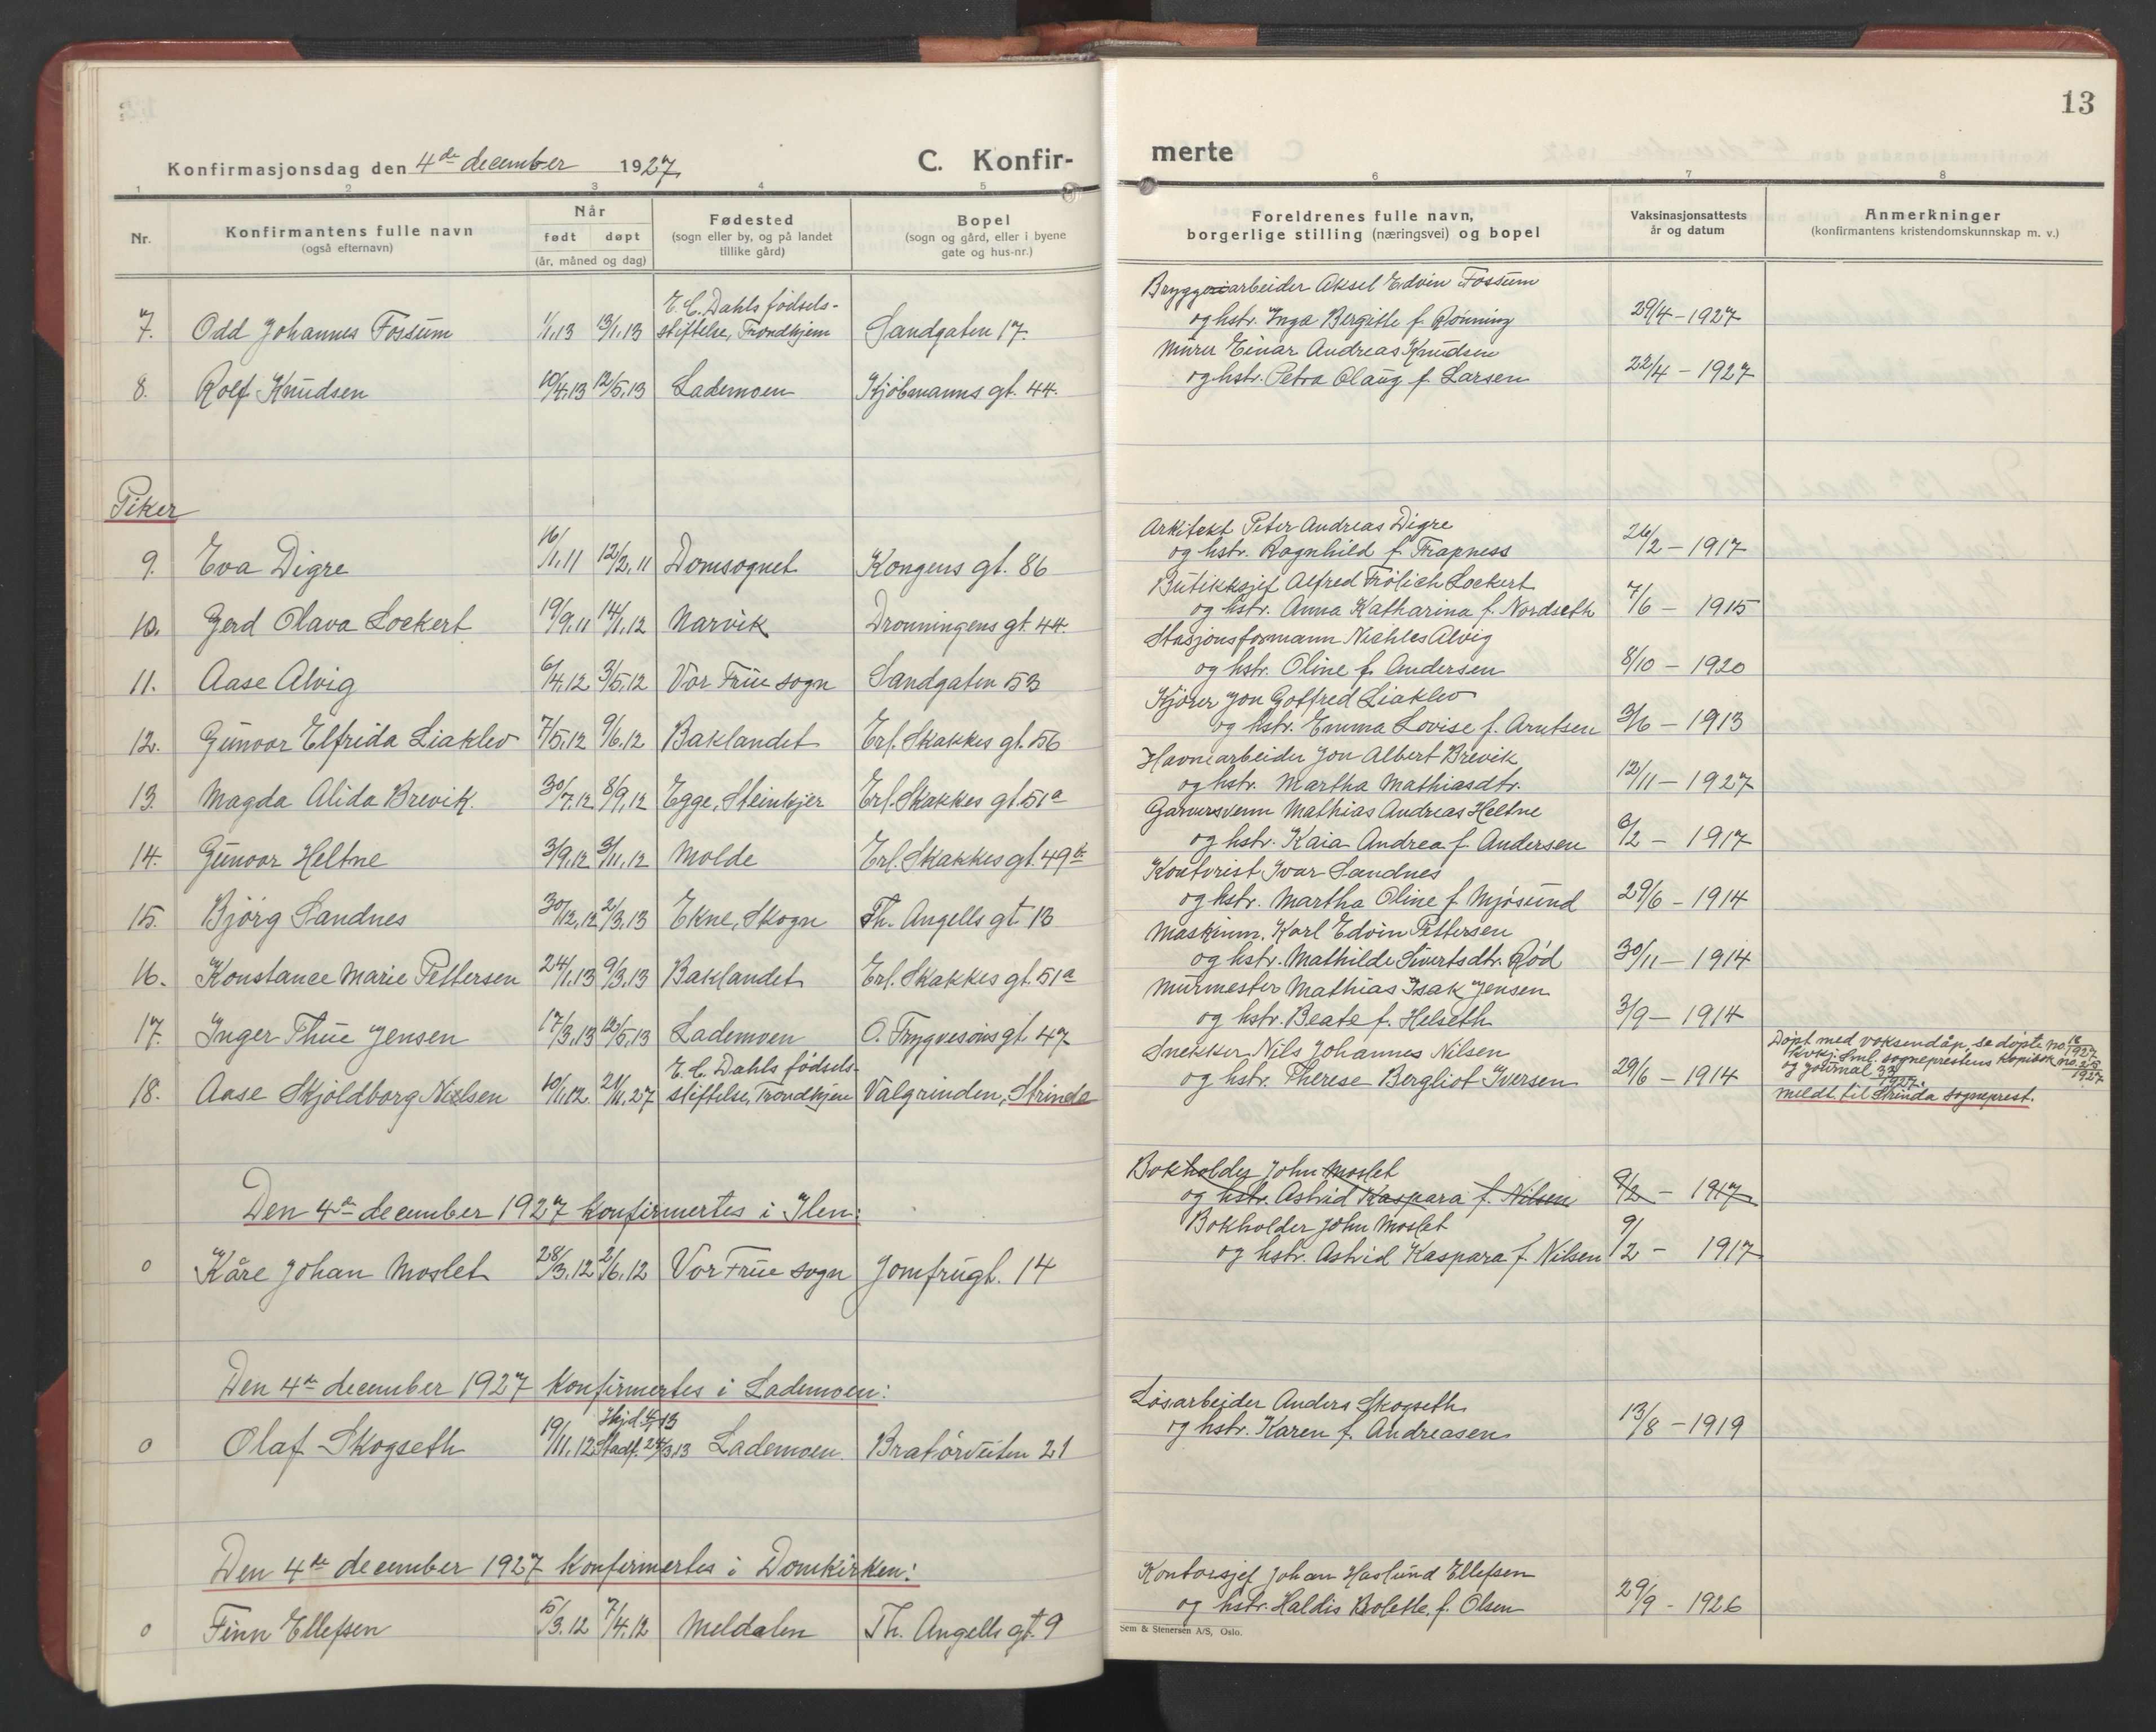 13
Konfirmasjonsdag den 4de december 1927. C. Konfir-
merte
1 2 3 4 5
6 7 8
Nr.
Konfirmantens fulle navn
(også efternavn)
Når
født døpt
(år, måned og dag)
Fødested
(sogn eller by, og på landet
tillike gård)
Bopel
(sogn og gård, eller i byene
gate og hus-nr.)
Foreldrenes fulle navn,
borgerlige stilling (næringsvei) og bopel
Vaksinasjonsattests
år og datum
Anmerkninger
(konfirmantens kristendomskunnskap m. v.)
E. C. Dahls fødsels- Bryggeriarbeider Aksel Edvin Fossum
7. Odd Johannes Fossum 1/1.13 13/1.13 stiftelse, Trondhjem Sandgaten 17. og hstr. Inga Bergitte f. Rønning 29/4-1927
Murer Einar Andreas Knudsen
8. Rolf Knudsen 10/4.13 12/5.13 Lademoen Kjøbmanns gt. 44. og hstr. Petra Olaug f. Larsen 22/4 - 1927
Piker
Arkitekt Peter Andreas Digre
9. Eva Digre 16/1.11 12/2.11 Domsognet Kongens gt. 86 og hstr. Ragnhild f. Trapness 26/2 - 1917
Butikksjef Alfred Frölich Lockert
10. Gerd Olava Lockert 19/9.11 14/1.12 Narvik Dronningens gt. 44. og hstr. Anna Katharina f. Nordseth 7/6 - 1915
Stasjonsformann Nichles Alvig
11. Aase Alvig 6/4.12 3/5.12 Vor Frue sogn Sandgaten 53 og hstr. Oline f. Andersen 8/10 - 1920
Kjører Jon Gotfred Liaklev
12. Gunvor Elfrida Liaklev 7/5.12 9/6.12 Baklandet Erl. Skakkes gt. 56 og hstr. Emma Lovise f. Arntsen 3/6 - 1913
Havnearbeider Jon Albert Brevik
13. Magda Alida Brevik. 30/7.12 8/9.12 Egge, Steinkjer Erl. Skakkes gt. 51a og hstr. Martha Mathiasdtr. 12/11 - 1927
Garversvenn Mathias Andreas Heltne
14. Gunvor Heltne 3/9.12 3/11.12 Molde Erl. Skakkes gt. 49b og hstr. Kaia Andrea f. Andersen 6/2 - 1917
Kontorist Ivar Sandnes
15. Bjørg Sandnes 30/12.12 2/3.13 Ekne, Skogn Th. Angells gt 13 og hstr. Martha Oline f Mjøsund 29/6 - 1914
Maskinm. Karl Edvin Pettersen
16. Konstance Marie Pettersen 24/1.13 9/3.13 Baklandet Erl. Skakkes gt. 51a og hstr. Mathilde Sivertsdtr. Rød 30/11 - 1914
Murmester Mathias Isak Jensen
17. Inger Thue Jensen 17/3.13 12/5.13 Lademoen O. Trygvesøns gt. 47 og hstr. Beate f. Helseth 3/9 - 1914
E. C. Dahls fødsels- Snekker Nils Johannes Nilsen
18. Aase Skjoldborg Nielsen 10/1.12. 21/11.27 stiftelse, Trondhjem Valgrinden, Strinda og hstr. Therese Bergliot Iversen 29/6 - 1914
Døpt med voksendåp, se døpte no. 18/1927
sogneprestens kopibok no.
og journal 1927.
Meldt til Strinda sogneprest.
Bokholder John Moslet
og hstr. Astrid Kaspara f. Nilsen 9/2 - 1917
Den 4de december 1927 konfirmertes i Ilen:
Bokholder John Moslet
0 Kåre Johan Moslet 28/3.12 2/6.12 Vor Frue sogn Jomfrugt. 14 og hstr. Astrid Kaspara f. Nilsen 9/2 - 1917
Den 4de december 1927 konfirmertes i Lademoen:
Hjd. Løsarbeider Anders Skogseth
0 Olaf Skogseth 19/11.12 Stadf. 24/3.13 Lademoen. Bratørveiten 21 og hstr. Karen f. Andreasen 13/8 - 1919
Den 4de december 1927 konfirmertes i Domkirken:
Kontorsjef Johan Haslund Ellefsen
0 Finn Ellefsen 5/3.12 7/4.12 Meldalen Th. Angells gt. 9 og hstr. Haldis Bolette, f. Olsen 29/9 - 1926
Sem & Stenersen A/S, Oslo.